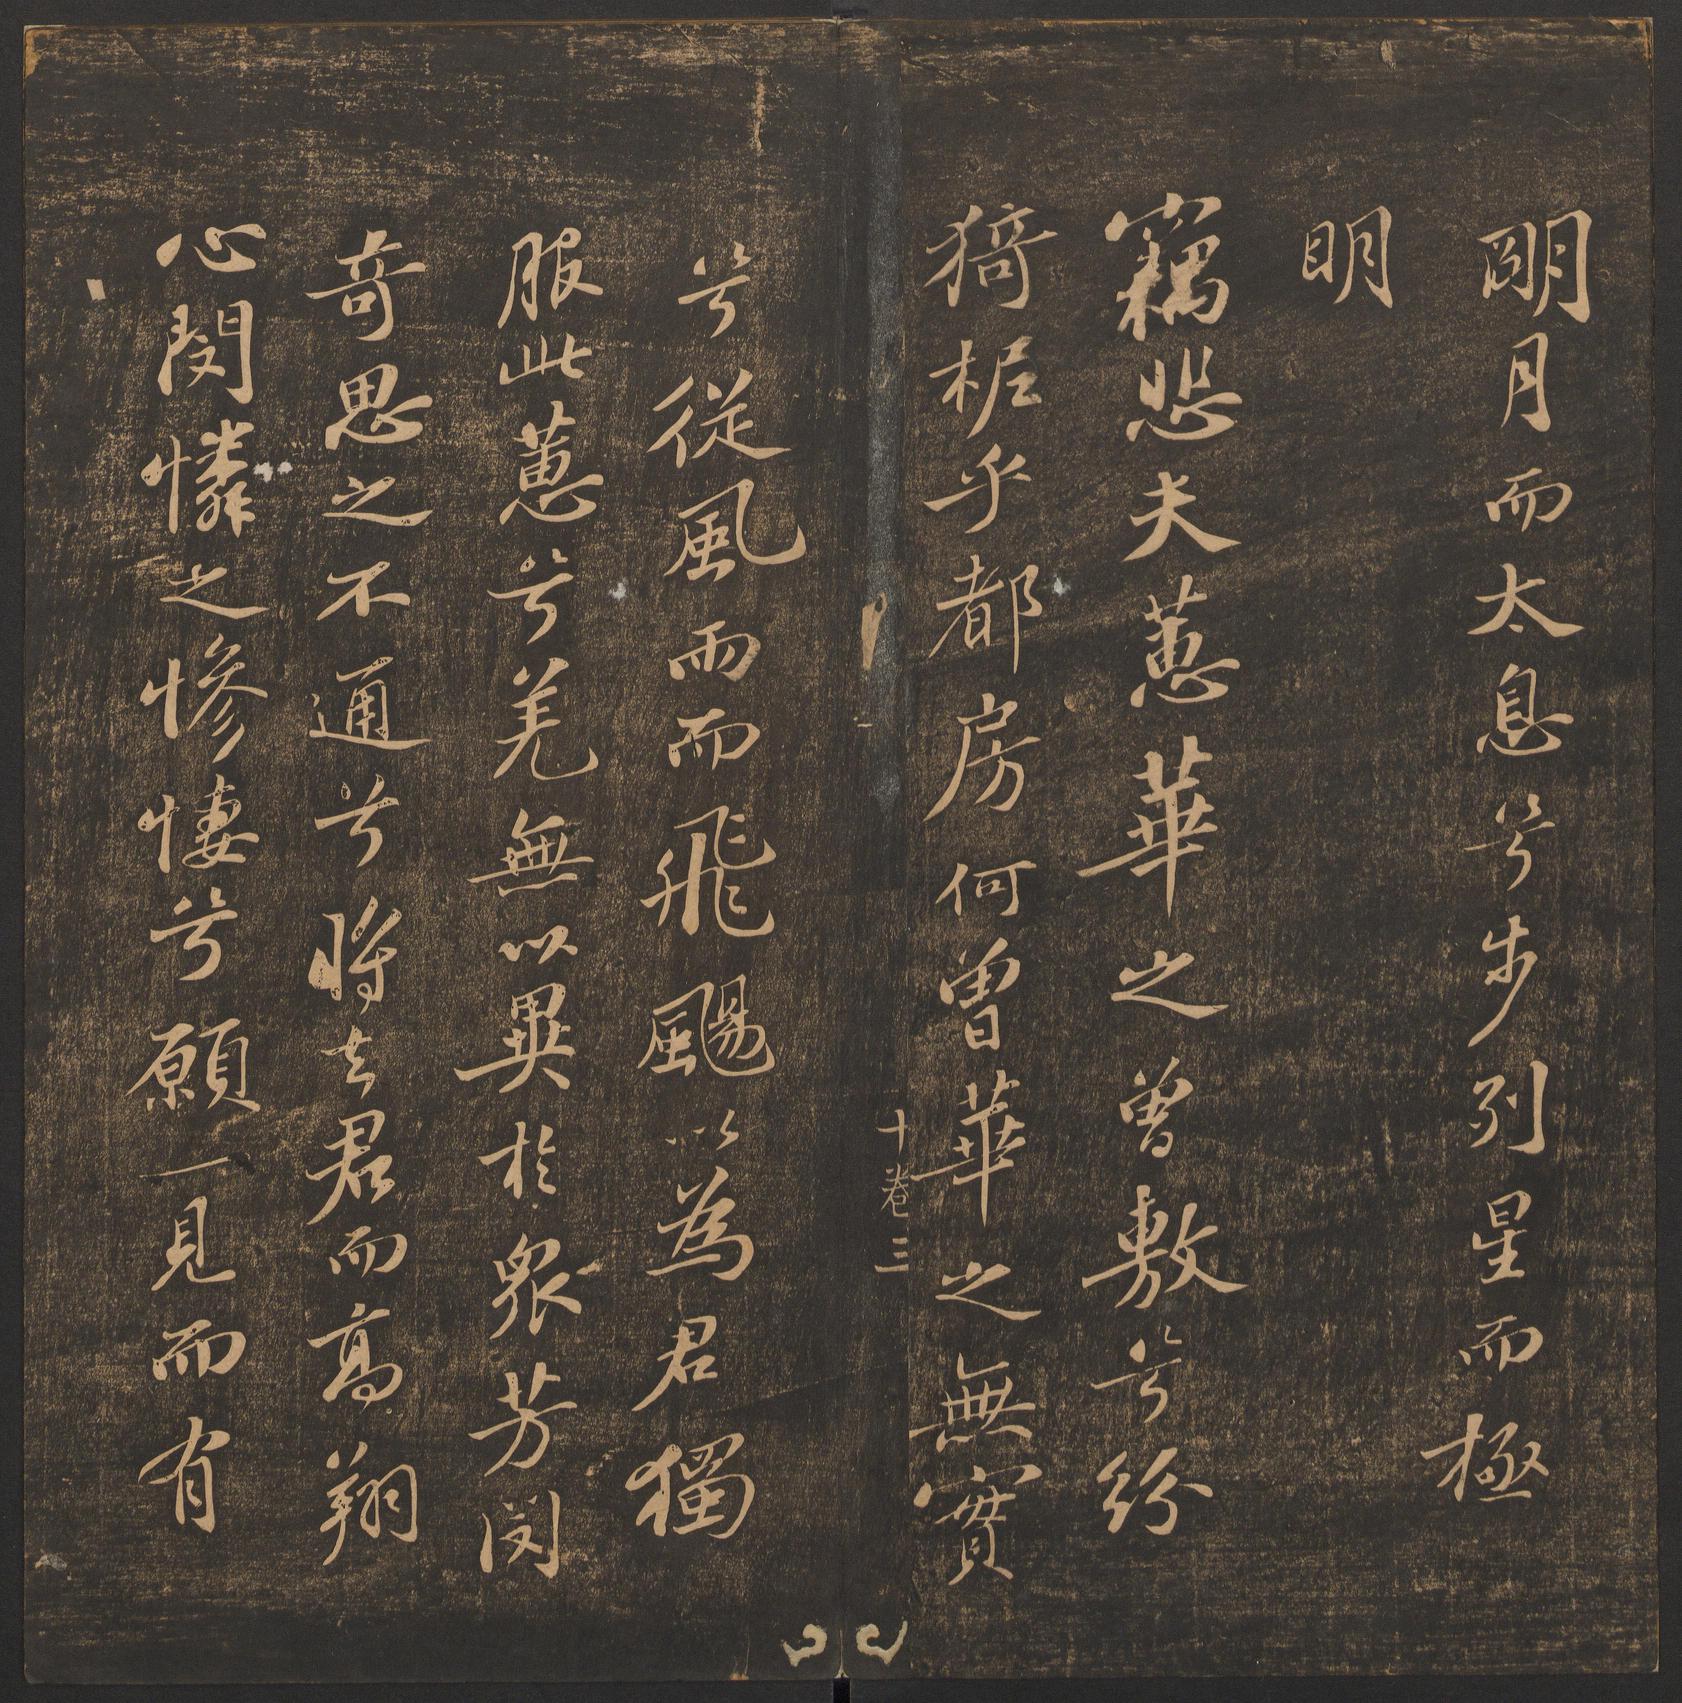 朙月而太息兮步列星而極
明
竊悲夫蕙華之曾敷兮紛
猗柅乎都房何曾華之無實
十卷三
兮從風雨而飛颺以為君獨
服此蕙兮羌無以異於眾芳閔
奇思之不通兮將去君而高翔
心閔憐之慘悽兮願一見而有